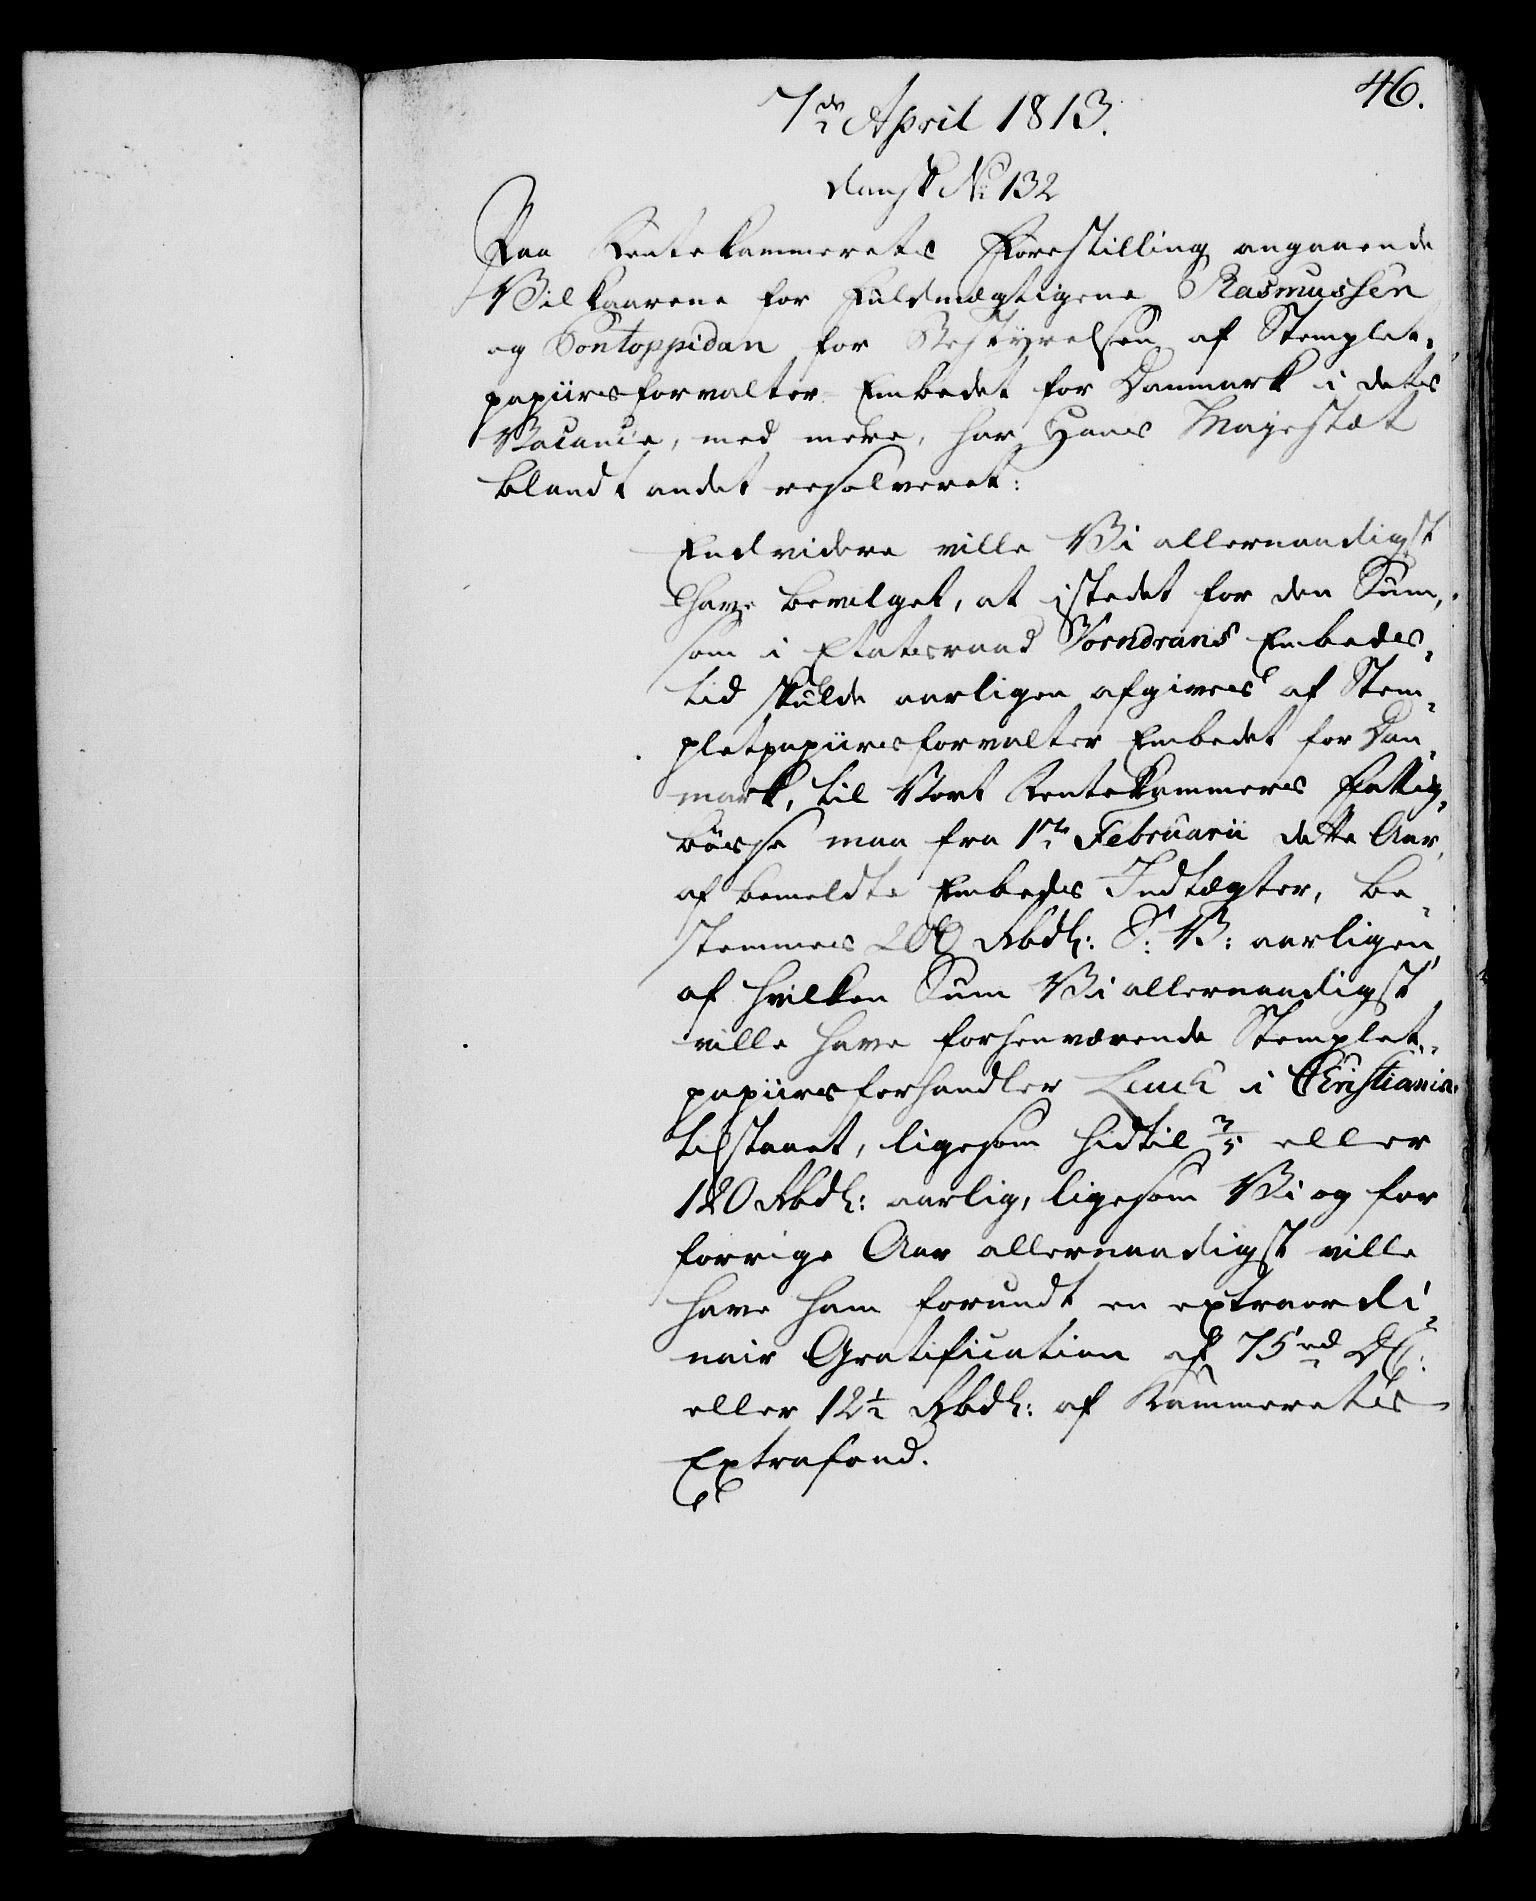 46.
7de April 1813.
dansk No 132
Paa Rentekammerets Forestilling angaaende
Vilkaarene for Fuldmægtigene Rasmussen
og Pontoppidan for Bestyrelsen af Stemplet-
papiirsforvalter Embedet for Danmark i dets
Vacance, med mere, har Hans Majestæt
blandt andet resolveret:
Endvidere ville Vi allernaadigst
have bevilget, at istedet for den Sum,
som i Etatsraad Vorndrans Embeds-
tid skulde aarligen afgives af Stem-
pletpapiirsforvalter Embedet for Dan-
mark, til Vort Rentekammers Fattig-
bøsse maa fra 1te Februarii dette Aar,
af bemeldte Embeds Indtægter, be-
stemmes 200 Rbdlr: S: V: aarligen,
af hvilken Sum Vi allernaadigst
ville have forhenværende Stemplet-
papiirsforhandler Lunch i Christiania
tilstaaet, ligesom hidtil 3/5 eller
120 Rbdlr: aarlig, ligesom Vi og for
forrige Aar allernaadigst ville
have ham forundt en extraordi-
nair Gratification af 75 rd DC:
eller 12½ Rbdlr: af Kammerets
Extrafond.